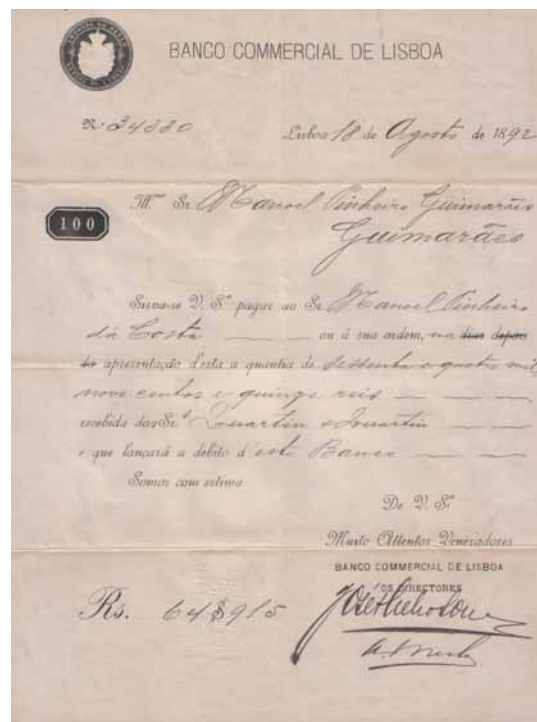 BANCO COMMERCIAL DE LISBOA
N.º 34330
Lisboa 18 de Agosto de 1892
Illmo Sr. Manoel Pinheiro Guimarães
100
Guimarães
Sirva-se V. Sª pagar ao Sr. Manoel Pinheiro
da Costa ou á sua ordem, na dias depois
da apresentação d'esta a quantia de sessenta e quatro mil
nove centos e quinze reis
recebida dos Srs. Quartin & Quartin
e que lançará a debito d'este Banco
Somos com estima
De V. Sª
Muito Attentos Veneradores
BANCO COMMERCIAL DE LISBOA
OS DIRECTORES
Rs. 64$915